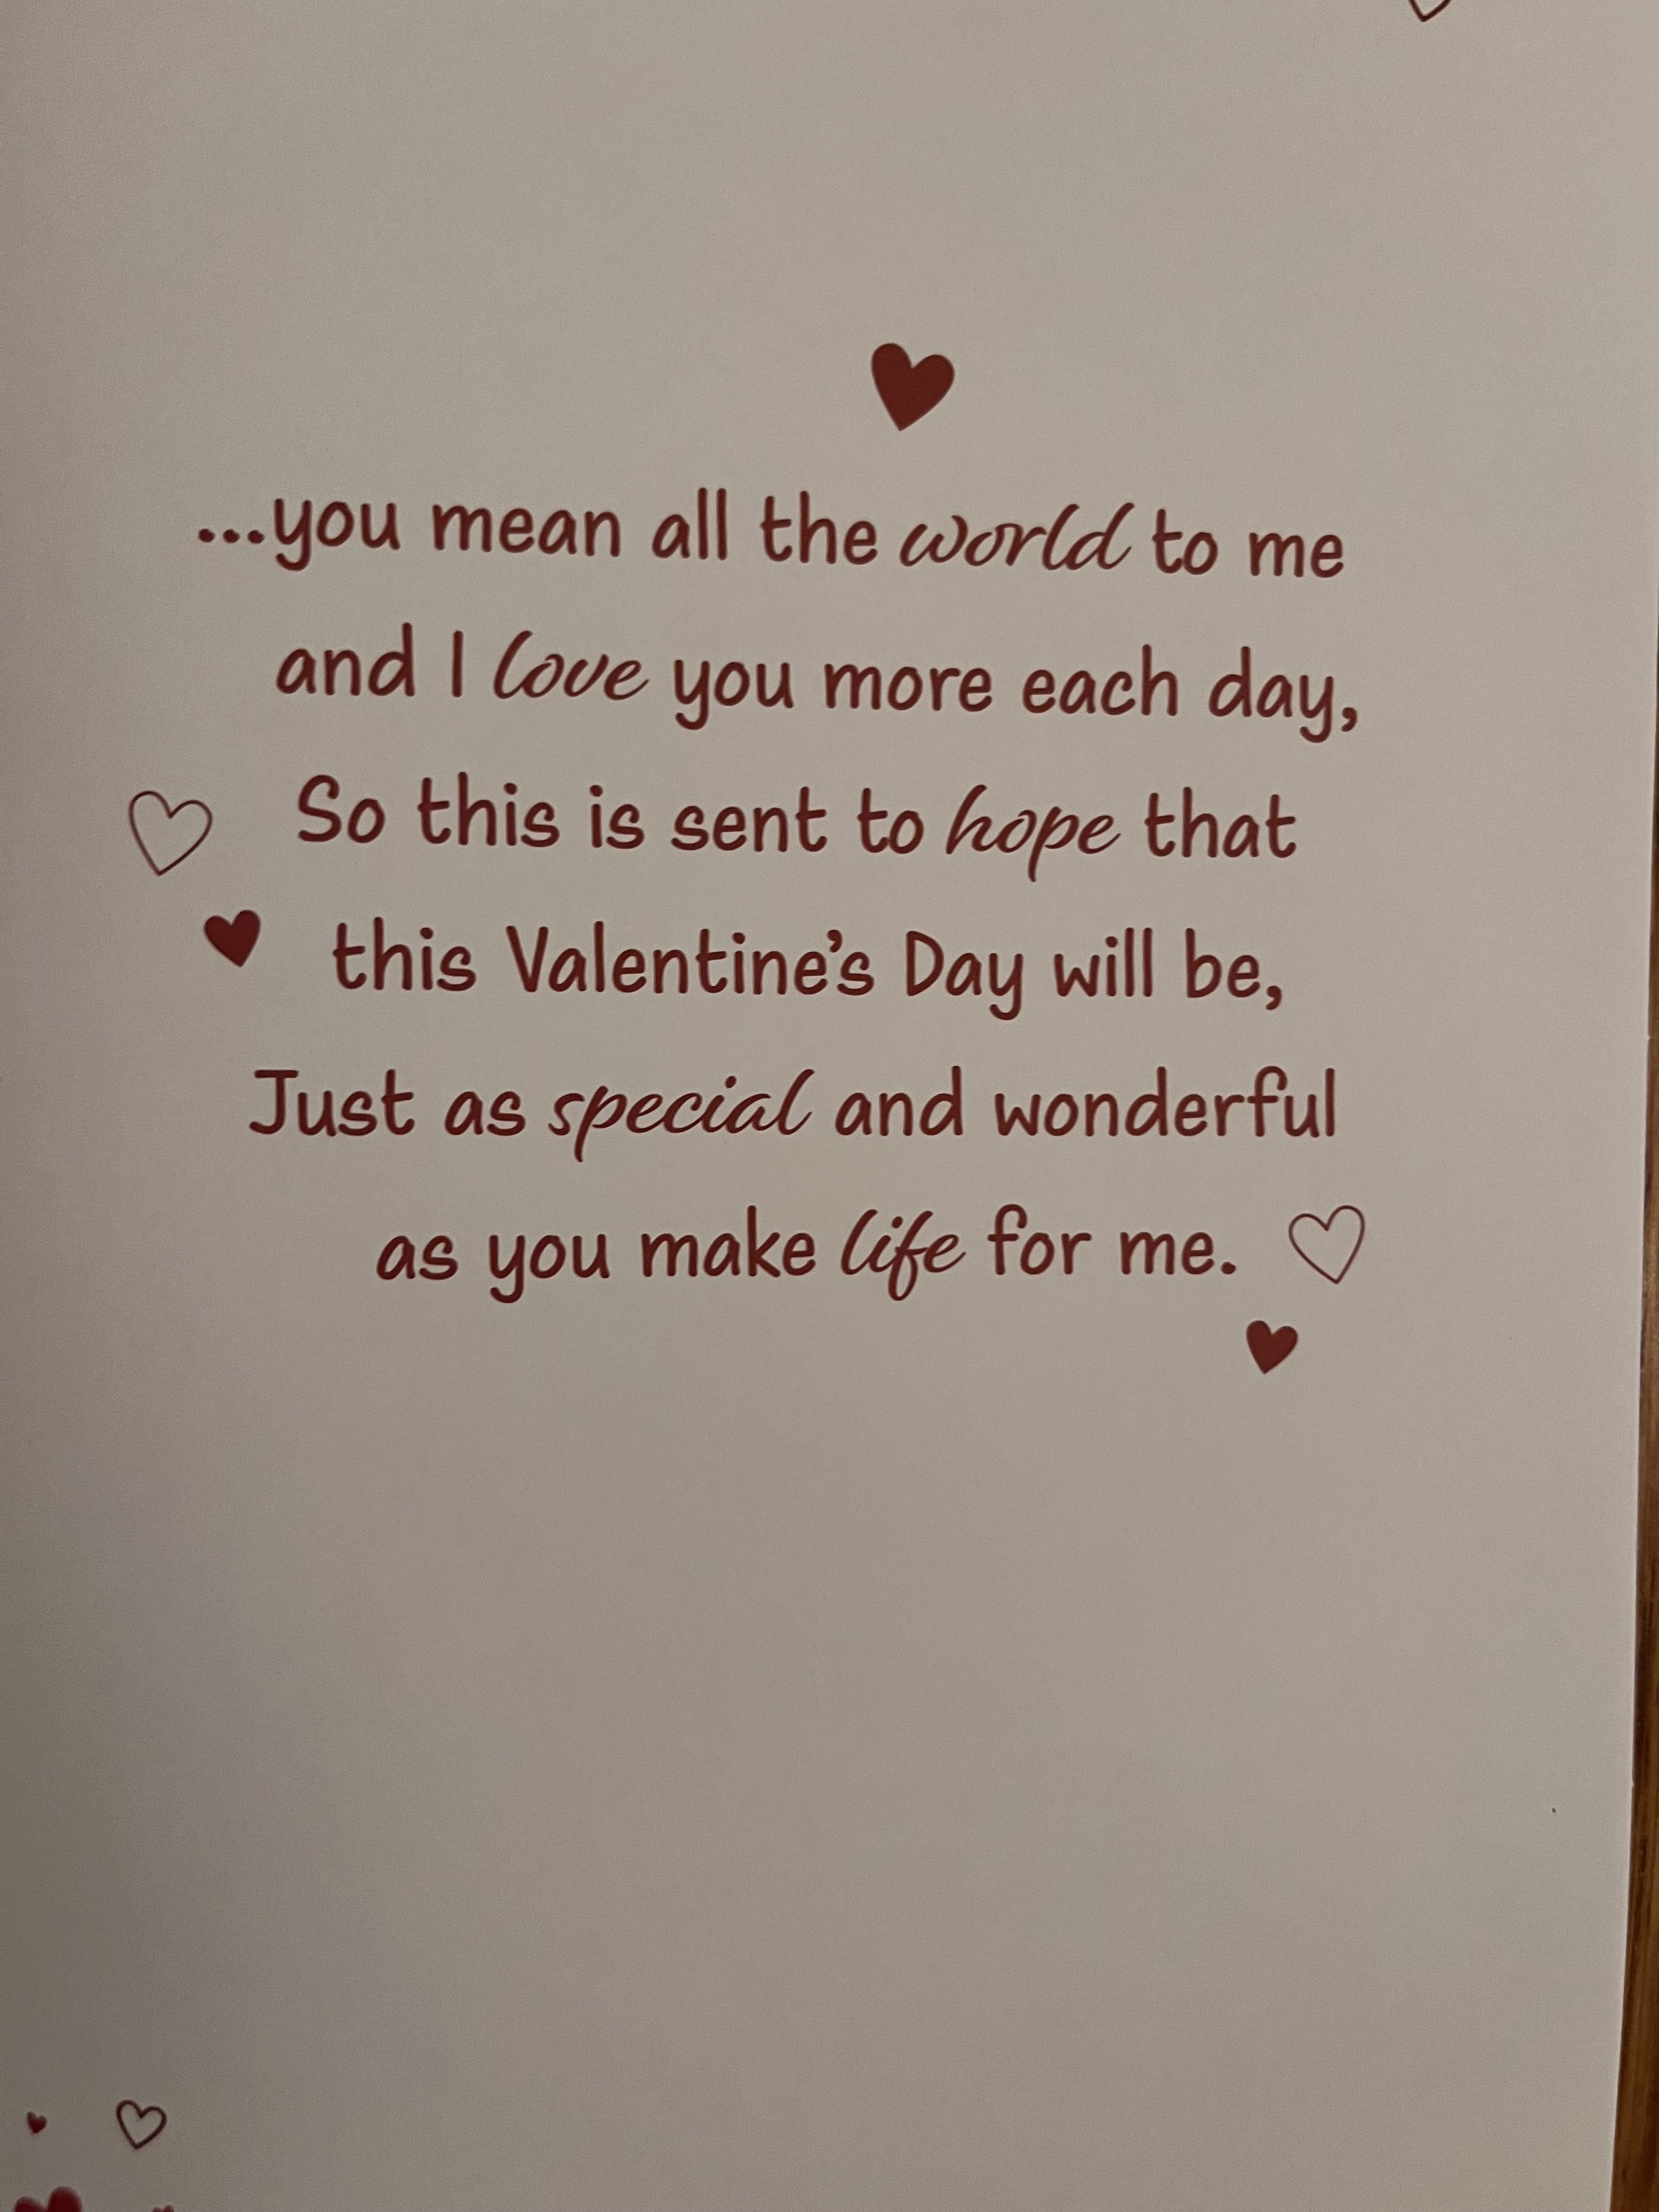 ...you mean all the world to me
and I love you more each day,
So this is sent to hope that
this Valentine’s Day will be,
Just as special and wonderful
as you make life for me.